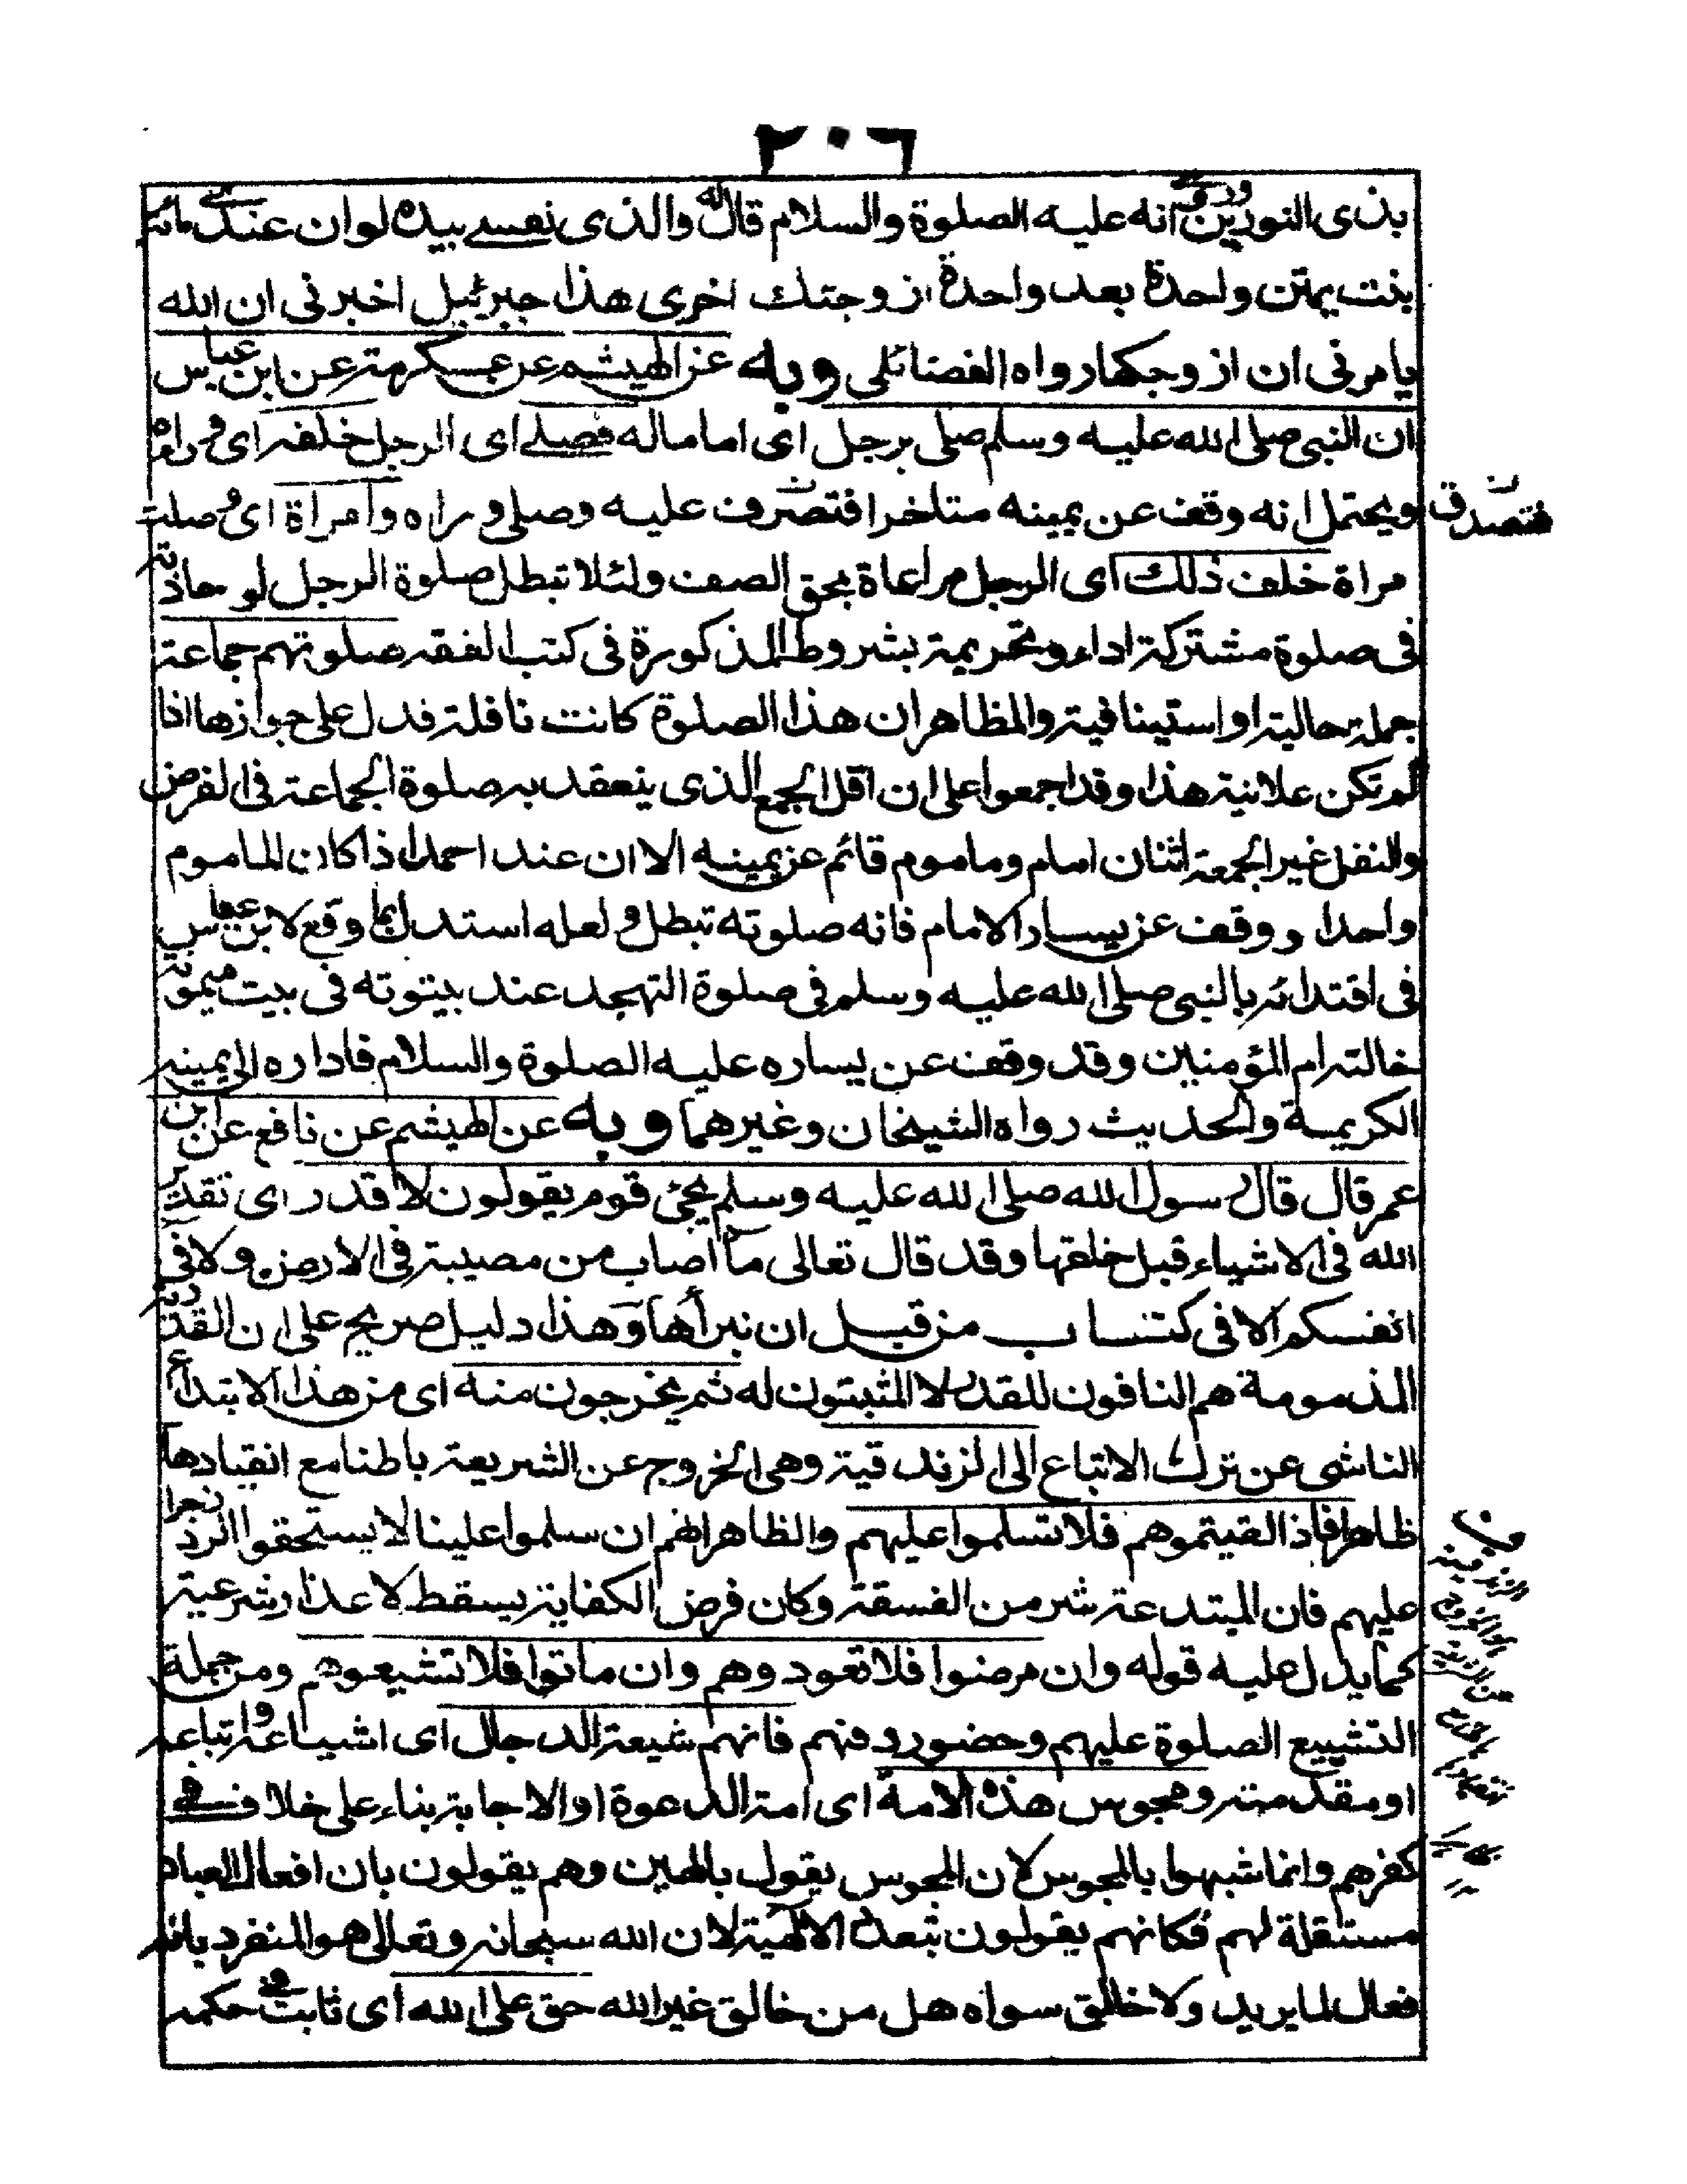 ٢٠٦
بذى النورين وروى انه عليه الصلوة والسلام قال له والذى نفسى بيده لو ان عندى مائة
بنت يمتن واحدة بعد واحدة ازوجتك اخرى هذا جبرئيل اخبرنى ان الله
يامرنى ان ازوجكها رواه الفضائلى وبه عن الهيشم عن عكرمة عن ابن عباس
ان النبى صلى الله عليه وسلم صلى برجل اى اماما له فصلى اى الرجل خلفه اى وراءه
ويحتمل انه وقف عن يمينه متاخرا فتصرف عليه وصلى وراه وامراة اى وصلت
مراة خلف ذلك اى الرجل مراعاة بحق الصف ولئلا تبطل صلوة الرجل لو حاذته
فى صلوة مشتركة اداء وتحريمة بشروط المذكورة فى كتب الفقه صلوتهم جماعة
جملة حالية او استينافية والمظاهر ان هذا الصلوة كانت نافلة فدل على جوازها اذا
لم تكن علانية هذا وقد اجمعوا على ان اقل الجمع الذى ينعقد به صلوة الجماعة فى الفرض
والنفل غير الجمعة اثنان امام وماموم قائم عن يمينه الا ان عند احمد اذا كان الماموم
واحدا ووقف عن يسار الامام فانه صلوته تبطل ولعله استدل بما وقع لابن عباس
فى اقتدائه بالنبى صلى الله عليه وسلم فى صلوة التهجد عند بيتوته فى بيت ميمونة
خالته ام المؤمنين وقد وقف عن يساره عليه الصلوة والسلام فاداره الى يمينه
الكريمة والحديث رواه الشيخان وغيرهما وبه عن الهيشم عن نافع عن ابن
عمر قال قال رسول الله صلى الله عليه وسلم يجئ قوم يقولون لا قدر اى تقدير
الله فى الاشياء قبل خلقها وقد قال تعالى ما اصاب من مصيبة فى الارض ولا فى
انفسكم الا فى كتاب من قبل ان نبرأها وهذا دليل صريح على ان القدرية
المذمومة هم النافون للقدر لا المثبتون له ثم يخرجون منه اى من هذا الابتداع
الناشى عن ترك الاتباع الى الزندقية وهى الخروج عن الشريعة باطنا مع انقيادها
ظاهرا فاذا لقيتموهم فلا تسلموا عليهم والظاهر انهم ان سلموا علينا لا يستحقوا الرد زجرا
عليهم فان المبتدعة شر من الفسقة وكان فرض الكفاية يسقط لاعذار شرعية
كما يدل عليه قوله وان مرضوا فلا تعودوهم وان ماتوا فلا تشيعوهم ومن جملة
التشييع الصلوة عليهم وحضور دفنهم فانهم شيعة الدجال اى اشياعه واتباعه
او مقدمته ومجوس هذه الامة اى امة الدعوة او الاجابة بناء على خلاف فى
كفرهم وانما شبهوا بالمجوس لان المجوس يقول بالهين وهم يقولون بان افعال العباد
مستقلة لهم فكانهم يقولون بتعدد الالهية لان الله سبحانه وتعالى هو المنفرد بانه
فعال لما يريد ولا خالق سواه هل من خالق غير الله حق على الله اى ثابت فى حكمه
فتصدق ن